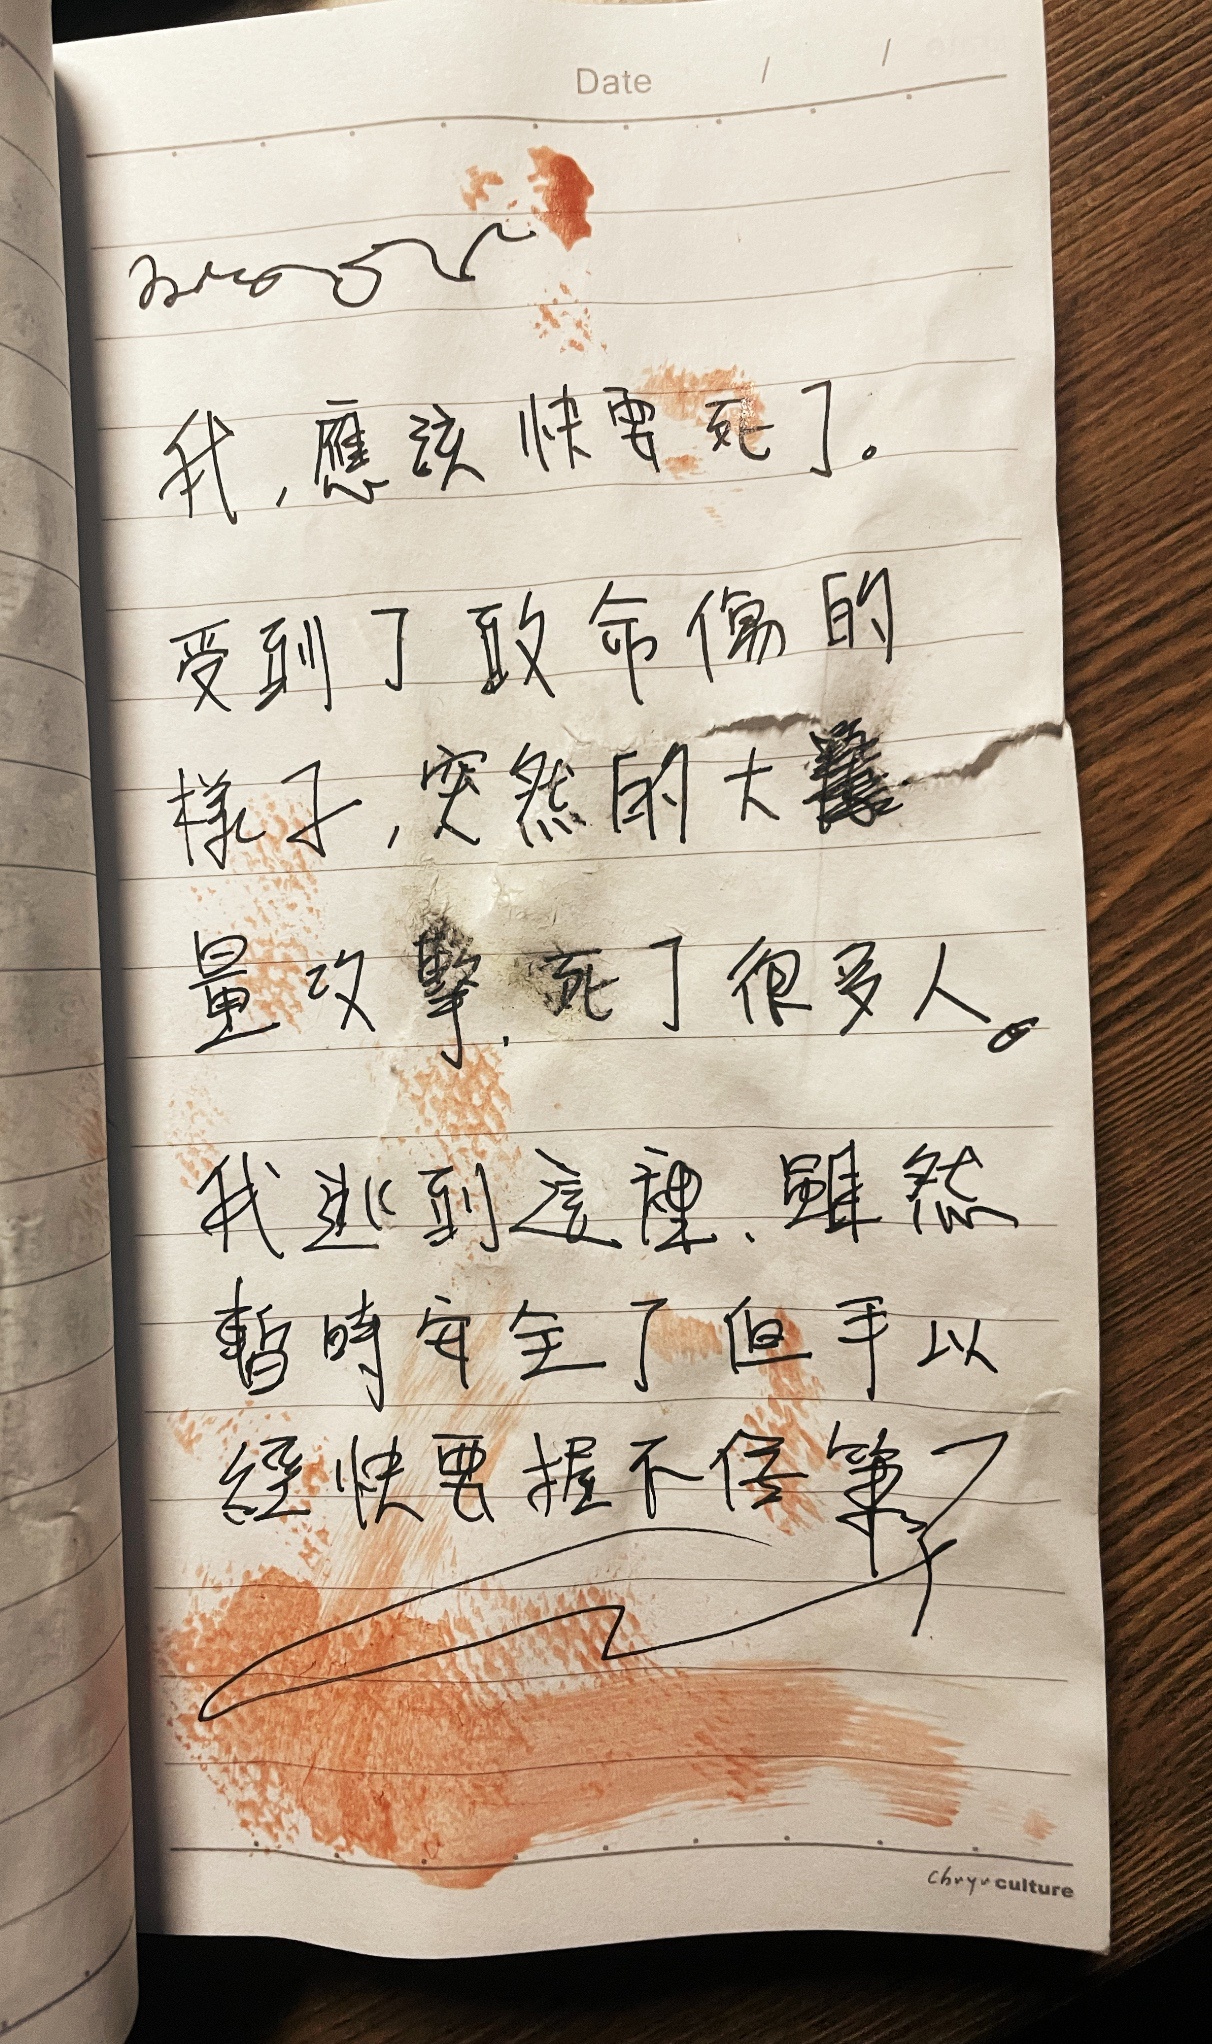 Date / /
我,應該快要死了。
受到了致命傷的
樣子,突然的大
量攻擊.死了很多人。
我逃到這裡、雖然
暫時安全了但手以
經快要握不住筆了
culture